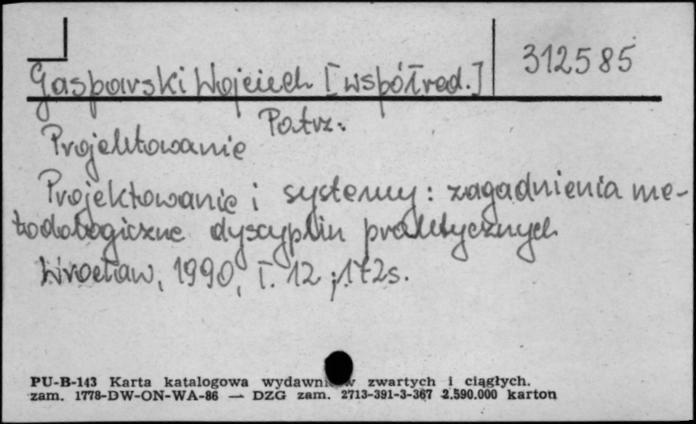 Gasparski Wojciech [współred.]
312585
Patrz:
Projektowanie
Projektowanie i systemy: zagadnienia me-
todologiczne dyscyplin praktycznych
Wrocław, 1990, T. 12; 172s.
PU-B-143 Karta katalogowa wydawnictw zwartych i ciągłych.
zam. 1778-DW-ON-WA-86 — DZG zam. 2713-391-3-367 2.590.000 karton